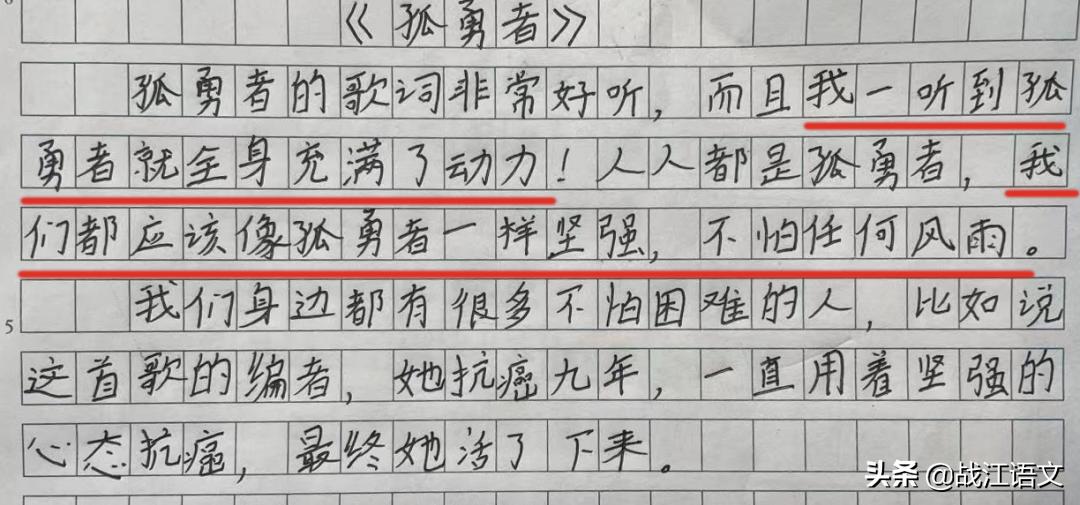 《孤勇者》
孤勇者的歌词非常好听，而且我一听到孤
勇者就全身充满了动力！人人都是孤勇者，我
们都应该像孤勇者一样坚强，不怕任何风雨。
我们身边都有很多不怕困难的人，比如说
5
这首歌的编者，她抗癌九年，一直用着坚强的
心态抗癌，最终她活了下来。
头条@战江语文